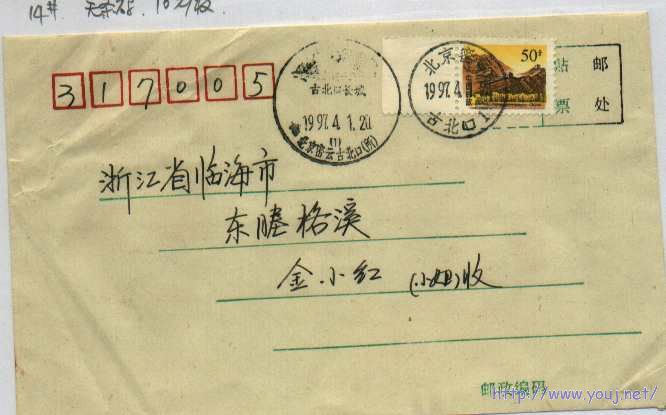 14#
317005
古北口长城
1997.4.1.20
北京密云古北口(所)
北京密云
1997.4.1
古北口
50分
贴邮
票处
浙江省临海市
东塍格溪
金小红(小姐)收
邮政编码
http://www.youj.net/